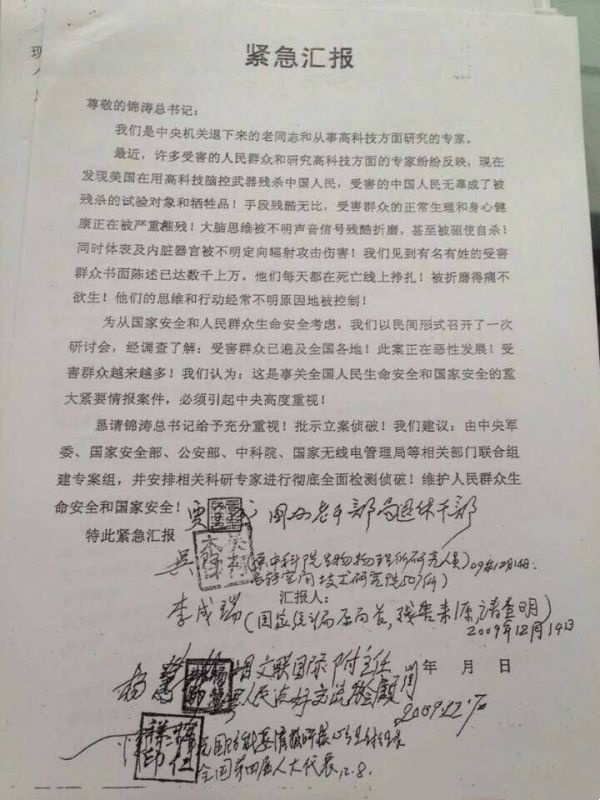 紧急汇报
尊敬的锦涛总书记：
我们是中央机关退下来的老同志和从事高科技方面研究的专家。
最近，许多受害的人民群众和研究高科技方面的专家纷纷反映，现在
发现美国在用高科技脑控武器残杀中国人民，受害的中国人民无辜成了被
残杀的试验对象和牺牲品！手段残酷无比，受害群众的正常生理和身心健
康正在被严重摧残！大脑思维被不明声音信号残酷折磨，甚至被驱使自杀！
同时体表及内脏器官被不明定向辐射攻击伤害！我们见到有名有姓的受害
群众书面陈述已达数千上万。他们每天都在死亡线上挣扎！被折磨得痛不
欲生！他们的思维和行动经常不明原因地被控制！
为从国家安全和人民群众生命安全考虑，我们以民间形式召开了一次
研讨会，经调查了解：受害群众已遍及全国各地！此案正在恶性发展！受
害群众越来越多！我们认为：这是事关全国人民生命安全和国家安全的重
大紧要情报案件，必须引起中央高度重视！
恳请锦涛总书记给予充分重视！批示立案侦破！我们建议：由中央军
委、国家安全部、公安部、中科院、国家无线电管理局等相关部门联合组
建专案组，并安排相关科研专家进行彻底全面检测侦破！维护人民群众生
命安全和国家安全！
贾 老干部局退休干部
特此紧急汇报
吴 (原中科院生物物理所研究人员) 09年12月14日.
空间技术研究院507所)
汇报人：
李成瑞 (国家统计局原局长, 残害来源请查明)
2009年12月14日
年 月 日
杨 文联国际 主任
2009.12.
全国第四届人大代表 12.8.